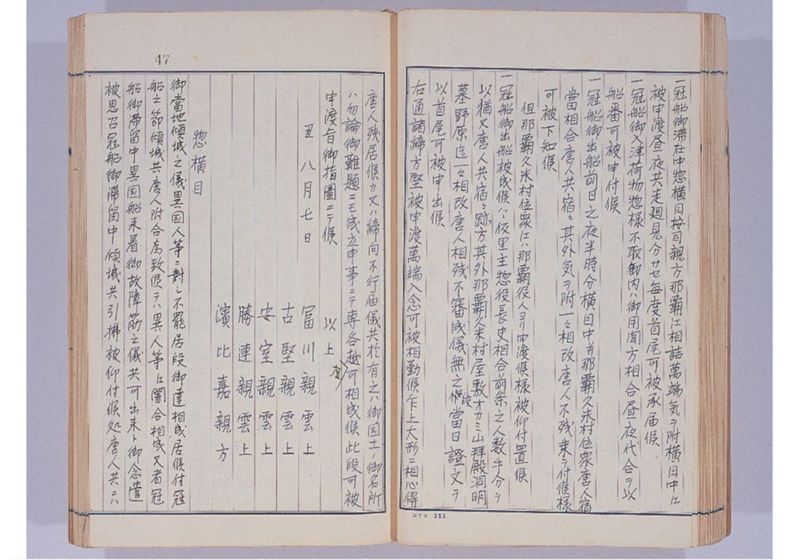 一冠船御滞在中惣横目按司親方那覇江相詰萬端気ヲ附横目中江
被申渡昼夜共走廻見分サセ毎度首尾可被承届候
一冠船御入津荷物惣様不取卸内ハ御用聞方相合昼夜代合ヲ以
船番可被申付候
一冠船御出船前日之夜半時分横目中并那覇久米村位衆唐人宿
当相合唐人共宿々其外気ヲ附一々相改唐人不残乗ラ付候様
可被下知候
但那覇久米村位衆江ハ那覇役人ヨリ申渡候様被仰付置候
一冠船御出船被成候ハヽ仮里主惣役長史相合前条之人数半分ヲ
以猶又唐人共宿々蹴方其外那覇久米村屋敷オカミ山拝殿洞明
墓野原迄一々相改唐人相残不審成儀無之段當日證文ヲ
以首尾可被申出候
右通諸締方堅被申渡萬端入念可被相勤候乍上大形ニ相心得
唐人残居候カ又ハ締向不行届儀共於有之ハ御国土ノ御名所
ハ勿論御難題ニモ成立申事ニテ専各越可相成候此段可被
申渡旨御指圖ニテ候
以上
丑八月七日
冨川親雲上
古堅親雲上
安室親雲上
勝連親雲上
濱比嘉親方
惣横目
御當地傾城之儀異国人等ニ對シ不罷居段御達相成居候付冠
船之節傾城共唐人附合為致候テハ異人等江闇合相成又者冠
船御滞留中異国船来着御故障筋之儀共可出来ト御念遣
被思召冠船御滞留中傾城共引拂被仰付候処唐人共ニハ
47
コクヨ 155